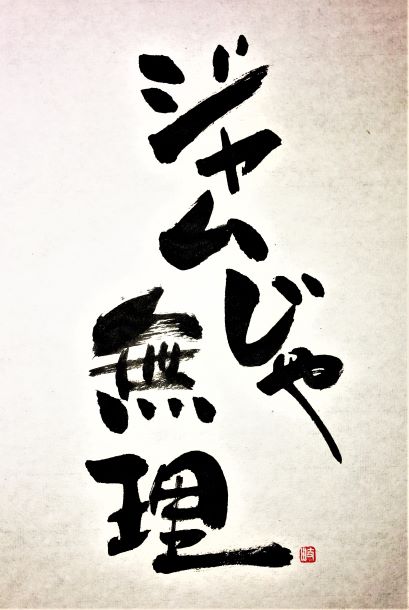 ジャムじゃ
無理
岐